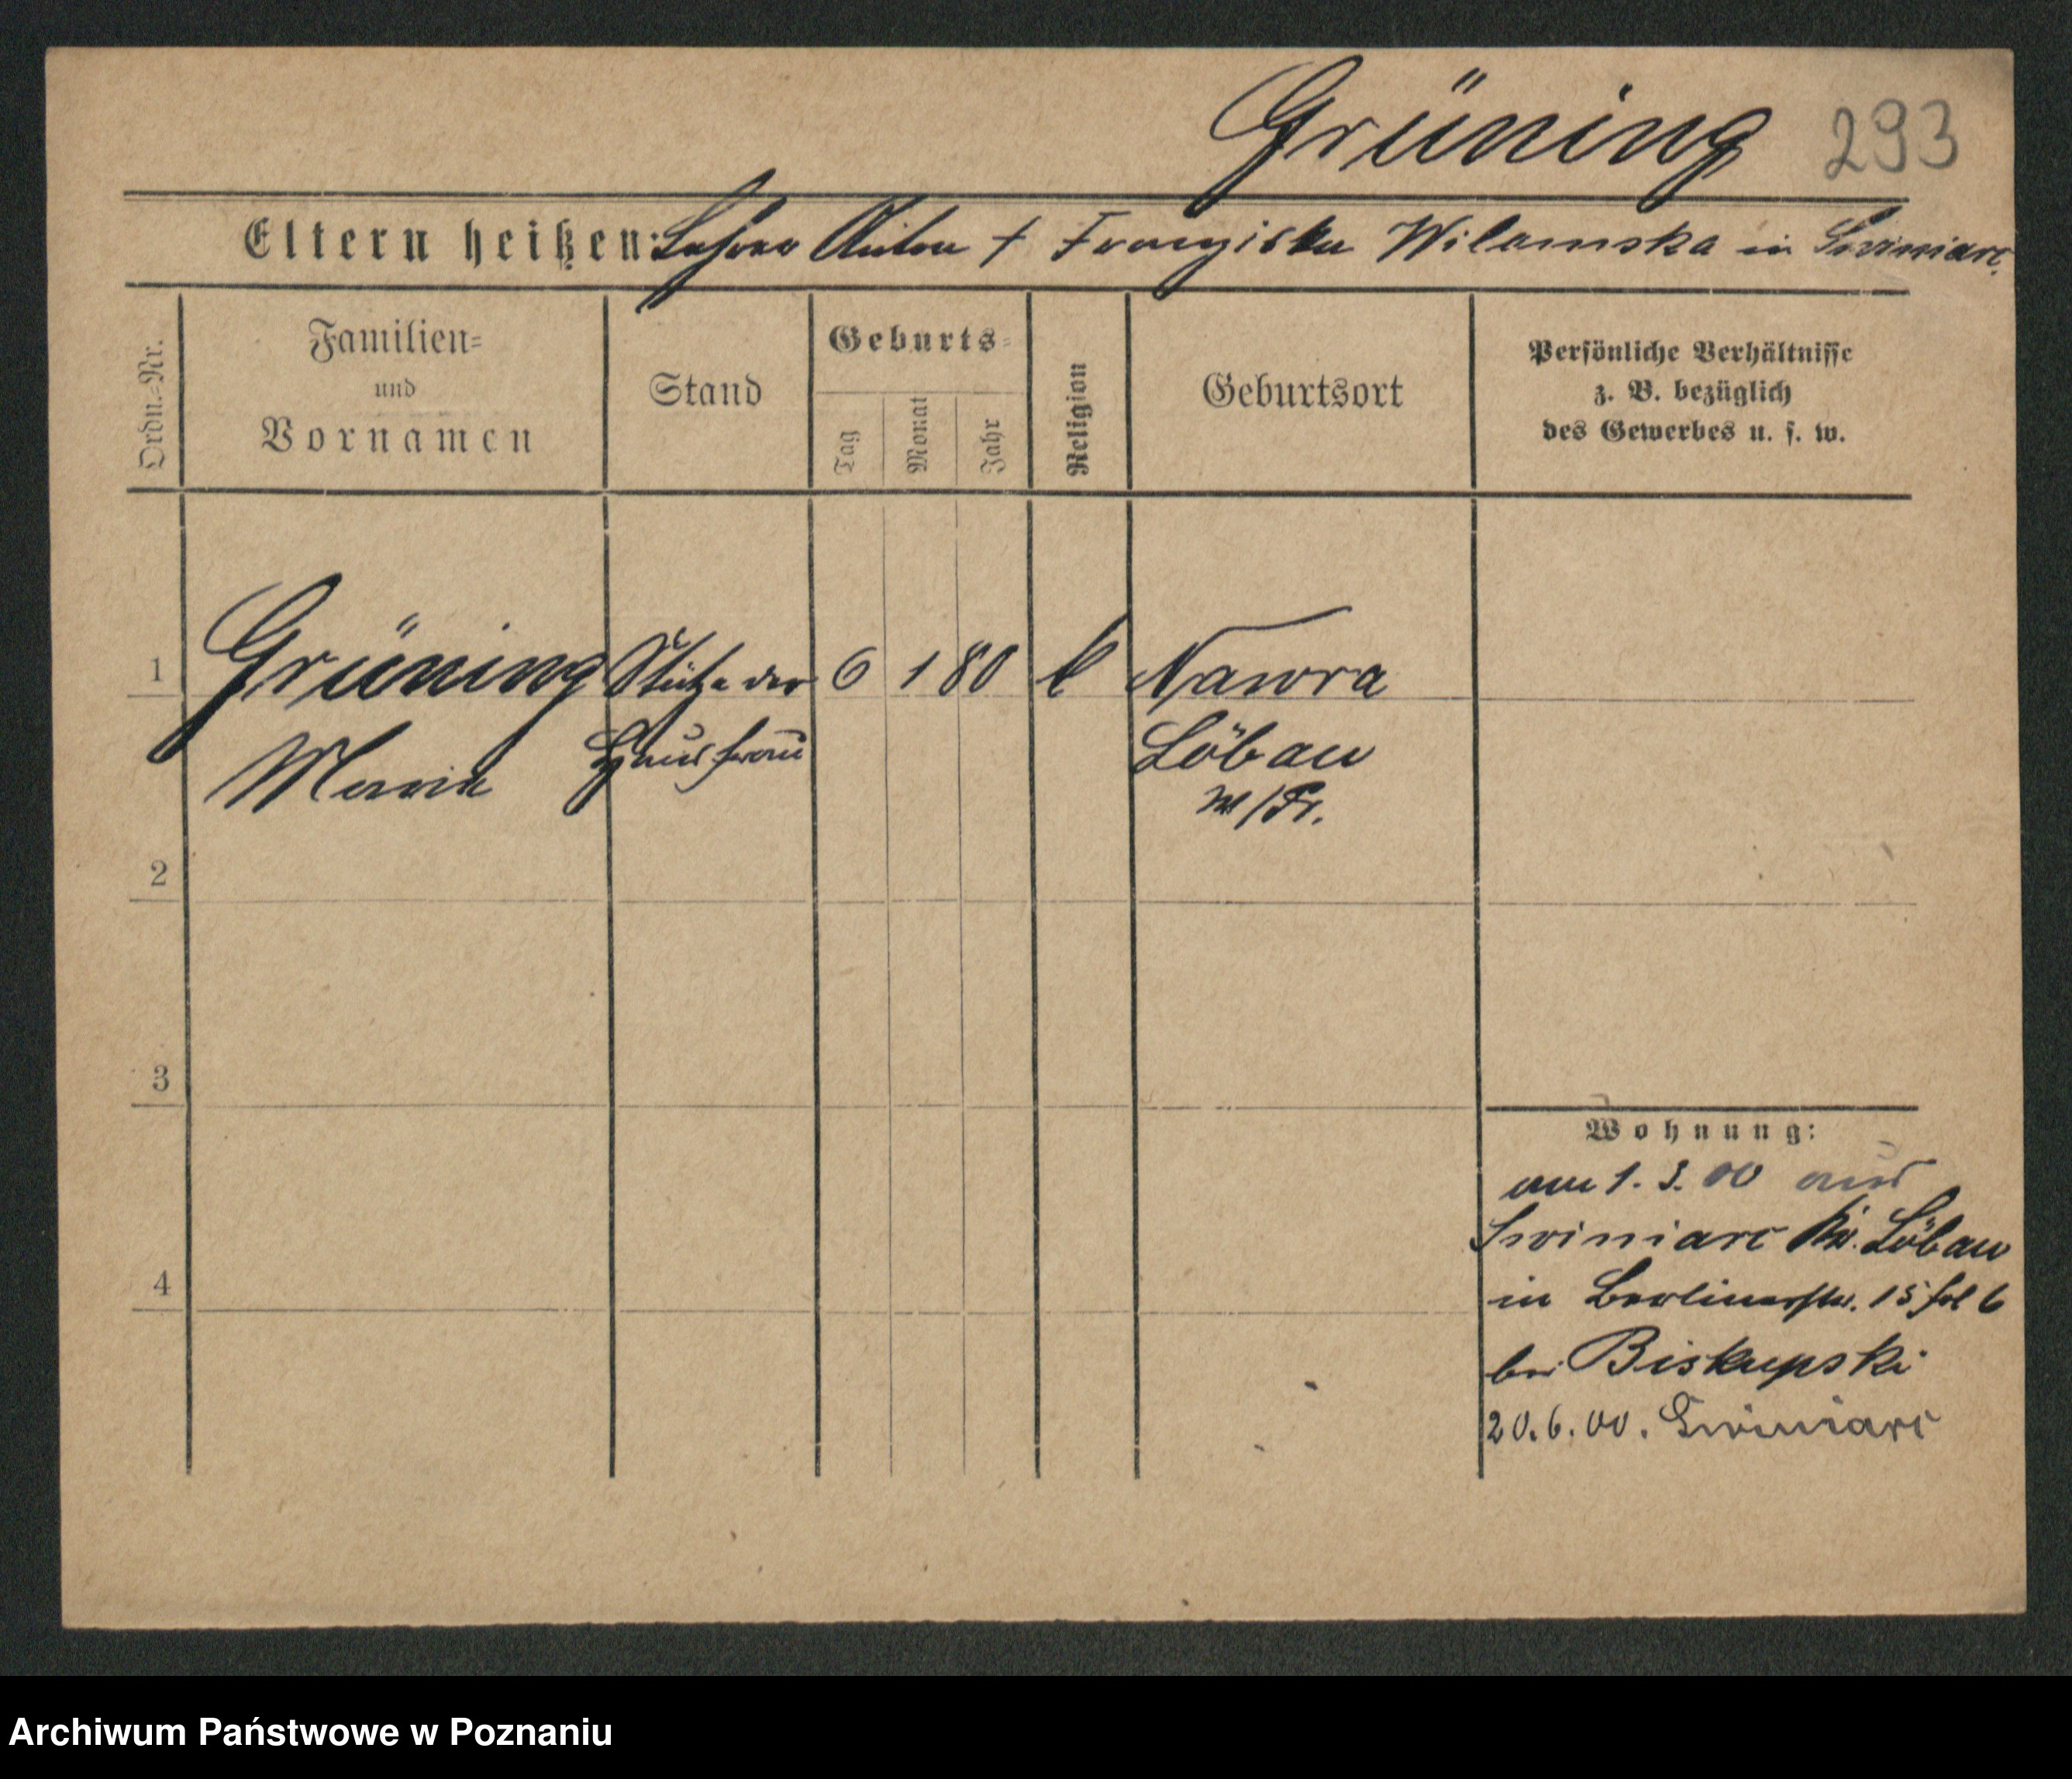 Grüning 293
Eltern heißen: Lehrer Anton † Franziska Wilamska in Swiniarc
Ordn.-Nr.
Familien-
und
Vornamen
Stand
Geburts-
Tag
Monat
Jahr
Religion
Geburtsort
Persönliche Verhältnisse
z. B. bezüglich
des Gewerbes u. s. w.
1 Grüning Stütze der 6 1 80 k Nawra
Maria Hausfrau Löbau
W/Pr.
2
3
Wohnung:
am 1. 3. 00 aus
Swiniarc Kr. Löbau
4
in Berlinerstr. 15 6
bei Biskupski
20. 6. 00. Swiniarc
Archiwum Państwowe w Poznaniu